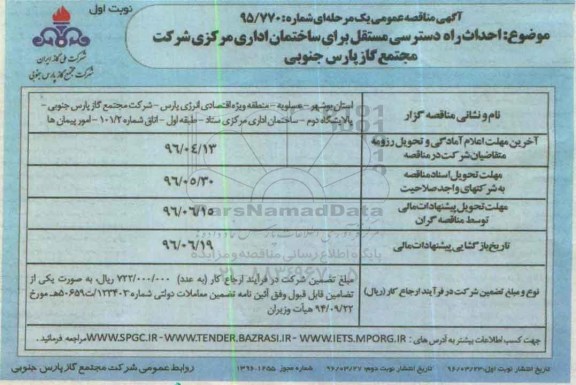 آگهی مناقصه عمومی یک مرحله‌ای شماره: ۹۵/۷۷۰
نوبت اول
موضوع: احداث راه دسترسی مستقل برای ساختمان اداری مرکزی شرکت
مجتمع گاز پارس جنوبی
شرکت ملی گاز ایران
شرکت مجتمع گاز پارس جنوبی
نام و نشانی مناقصه گزار
استان بوشهر - عسلویه - منطقه ویژه اقتصادی انرژی پارس - شرکت مجتمع گاز پارس جنوبی -
پالایشگاه دوم - ساختمان اداری مرکزی ستاد - طبقه اول - اتاق شماره ۱۰۱/۲ - امور پیمان ها
آخرین مهلت اعلام آمادگی و تحویل رزومه
متقاضیان شرکت در مناقصه
۹۶/۰۴/۱۳
مهلت تحویل اسناد مناقصه
به شرکتهای واجد صلاحیت
۹۶/۰۵/۳۰
مهلت تحویل پیشنهادات مالی
توسط مناقصه گران
۹۶/۰۶/۱۵
تاریخ بازگشایی پیشنهادات مالی
۹۶/۰۶/۱۹
نوع و مبلغ تضمین شرکت در فرآیند ارجاع کار (ریال)
مبلغ تضمین شرکت در فرآیند ارجاع کار (به عدد) ۷۲۲/۰۰۰/۰۰۰ ریال، به صورت یکی از
تضامین قابل قبول وفق آئین نامه تضمین معاملات دولتی شماره ۱۲۳۴۰۲/ت۵۰۶۵۹هـ مورخ
۹۴/۰۹/۲۲ هیأت وزیران
جهت کسب اطلاعات بیشتر به آدرس های: WWW.SPGC.IR - WWW.TENDER.BAZRASI.IR - WWW.IETS.MPORG.IR مراجعه فرمائید.
تاریخ انتشار نوبت اول: ۹۶/۰۳/۲۳
تاریخ انتشار نوبت دوم: ۹۶/۰۳/۲۷
شماره مجوز ۱۳۹۶.۱۶۵۵
روابط عمومی شرکت مجتمع گاز پارس جنوبی
ParsNamadData
پایگاه اطلاع رسانی مناقصه و مزایده